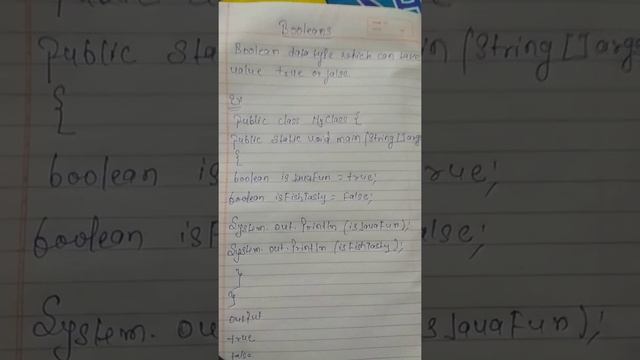 Booleans
Boolean data type which can take
value true or false.
Ex
public class MyClass {
public static void main (String []args
{
boolean isJavaFun = true;
boolean isFishTasty = false;
System.out.Println (isJavaFun);
System.out.Println (isFishTasty);
}
}
output
true
false